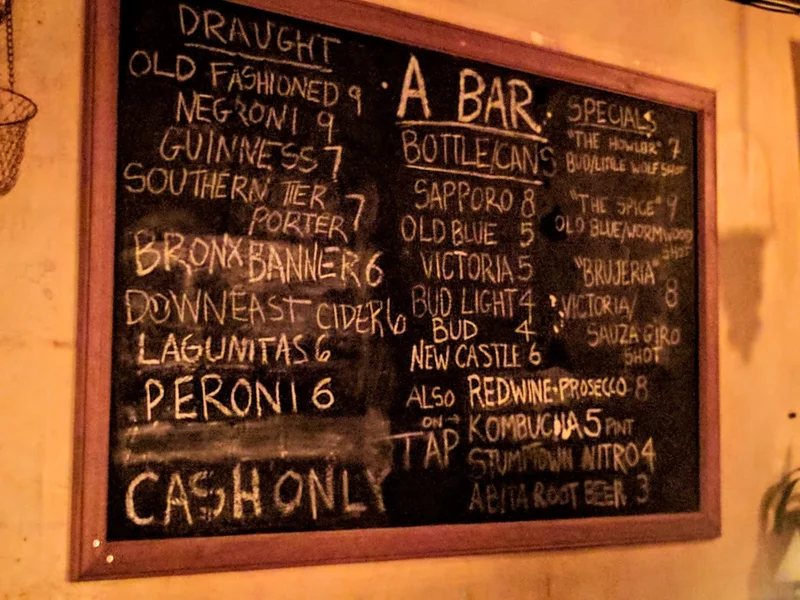 DRAUGHT
OLD FASHIONED 9
NEGRONI 9
GUINNESS 7
SOUTHERN TIER
PORTER 7
BRONX BANNER 6
DOWNEAST CIDER 6
LAGUNITAS 6
PERONI 6
CASH ONLY
A BAR
BOTTLE/CANS
SAPPORO 8
OLD BLUE 5
VICTORIA 5
BUD LIGHT 4
BUD 4
NEW CASTLE 6
ALSO RED WINE • PROSECCO 8
ON →
TAP
KOMBUCHA 5 PINT
STUMPTOWN NITRO 4
ABITA ROOT BEER 3
SPECIALS
"THE HOWLER" 7
BUD/LITTLE WOLF SHOT
"THE SPICE" 9
OLD BLUE/WORMWOOD
SHOT
"BRUJERIA" 8
VICTORIA/
SAUZA GIRO
SHOT